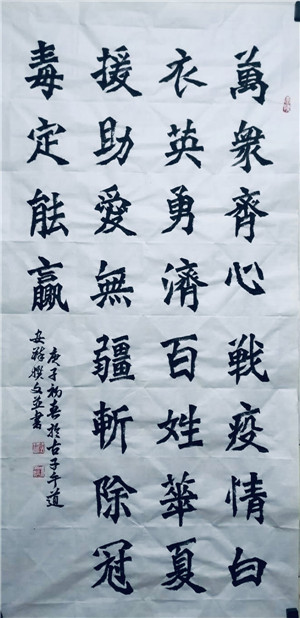 萬衆齊心戰疫情白
衣英勇濟百姓華夏
援助愛無疆斬除冠
毒定能贏
庚子初春於古子午道
安辉撰文並書